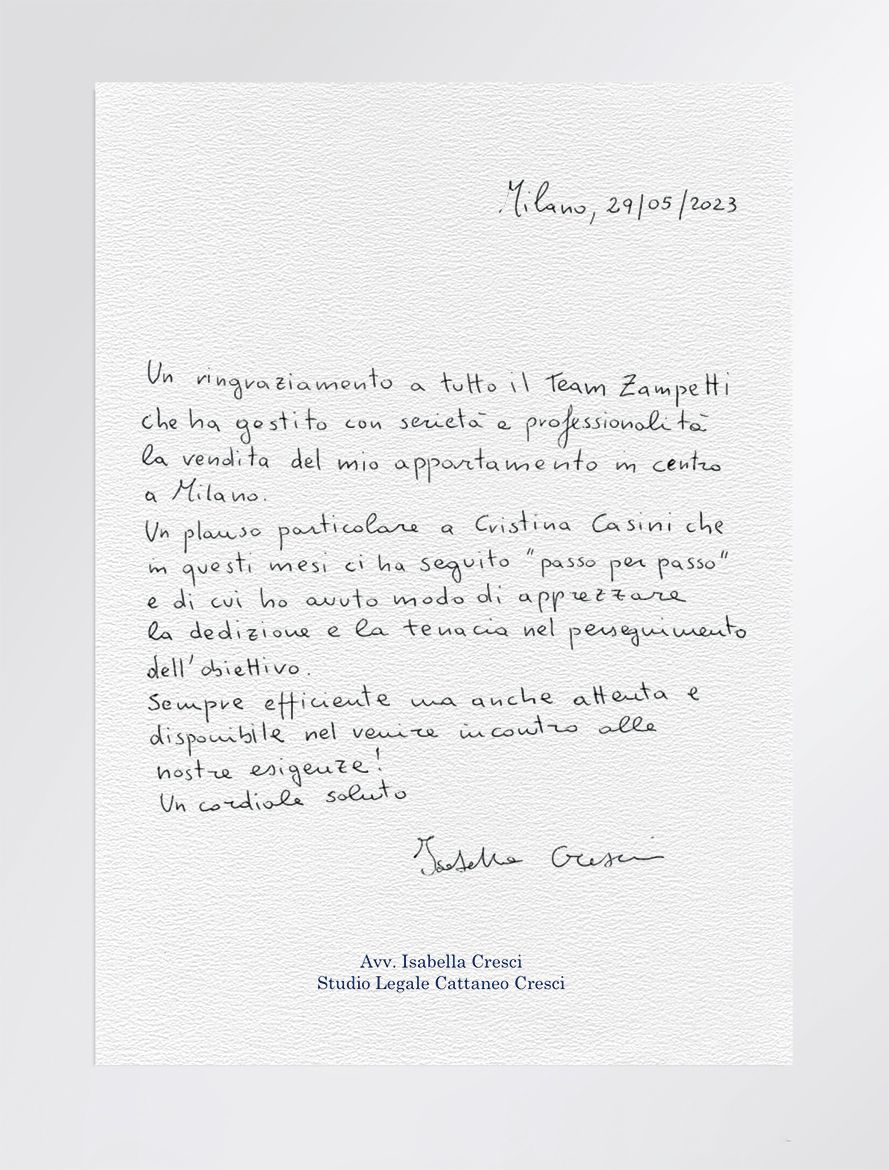 Milano, 29/05/2023
Un ringraziamento a tutto il Team Zampetti
che ha gestito con serietà e professionalità
la vendita del mio appartamento in centro
a Milano.
Un plauso particolare a Cristina Casini che
in questi mesi ci ha seguito "passo per passo"
e di cui ho avuto modo di apprezzare
la dedizione e la tenacia nel perseguimento
dell'obiettivo.
Sempre efficiente ma anche attenta e
disponibile nel venire incontro alle
nostre esigenze!
Un cordiale saluto
Isabella Cresci
Avv. Isabella Cresci
Studio Legale Cattaneo Cresci